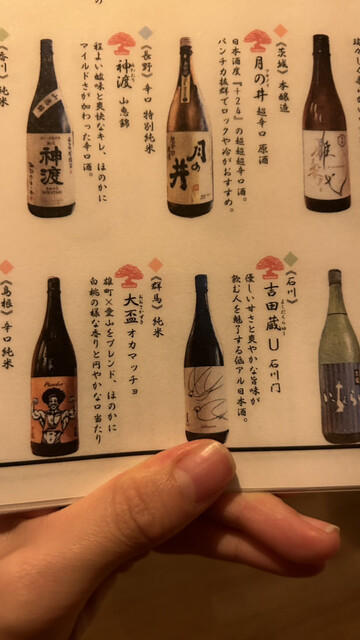 〈茨城〉本醸造
月の井 超辛口 原酒
日本酒度『+26』の超超辛口酒。
パンチ力抜群でロックや冷がおすすめ。
月の井
〈長野〉辛口 特別純米
みわたり
神渡 山恵錦
程よい酸味と爽快なキレ、ほのかに
マイルドさが加わった辛口酒。
神渡
〈香川〉純米
〈石川〉
よしだくらゆー
吉田蔵U 石川門
優しい甘さと爽やかな旨味が
飲む人を魅了する低アル日本酒。
〈群馬〉純米
おおさかずき
大盃 オカマッチョ
雄町×愛山をブレンド、ほのかに
白桃の様な香りと円やかな口当たり
〈島根〉辛口 純米